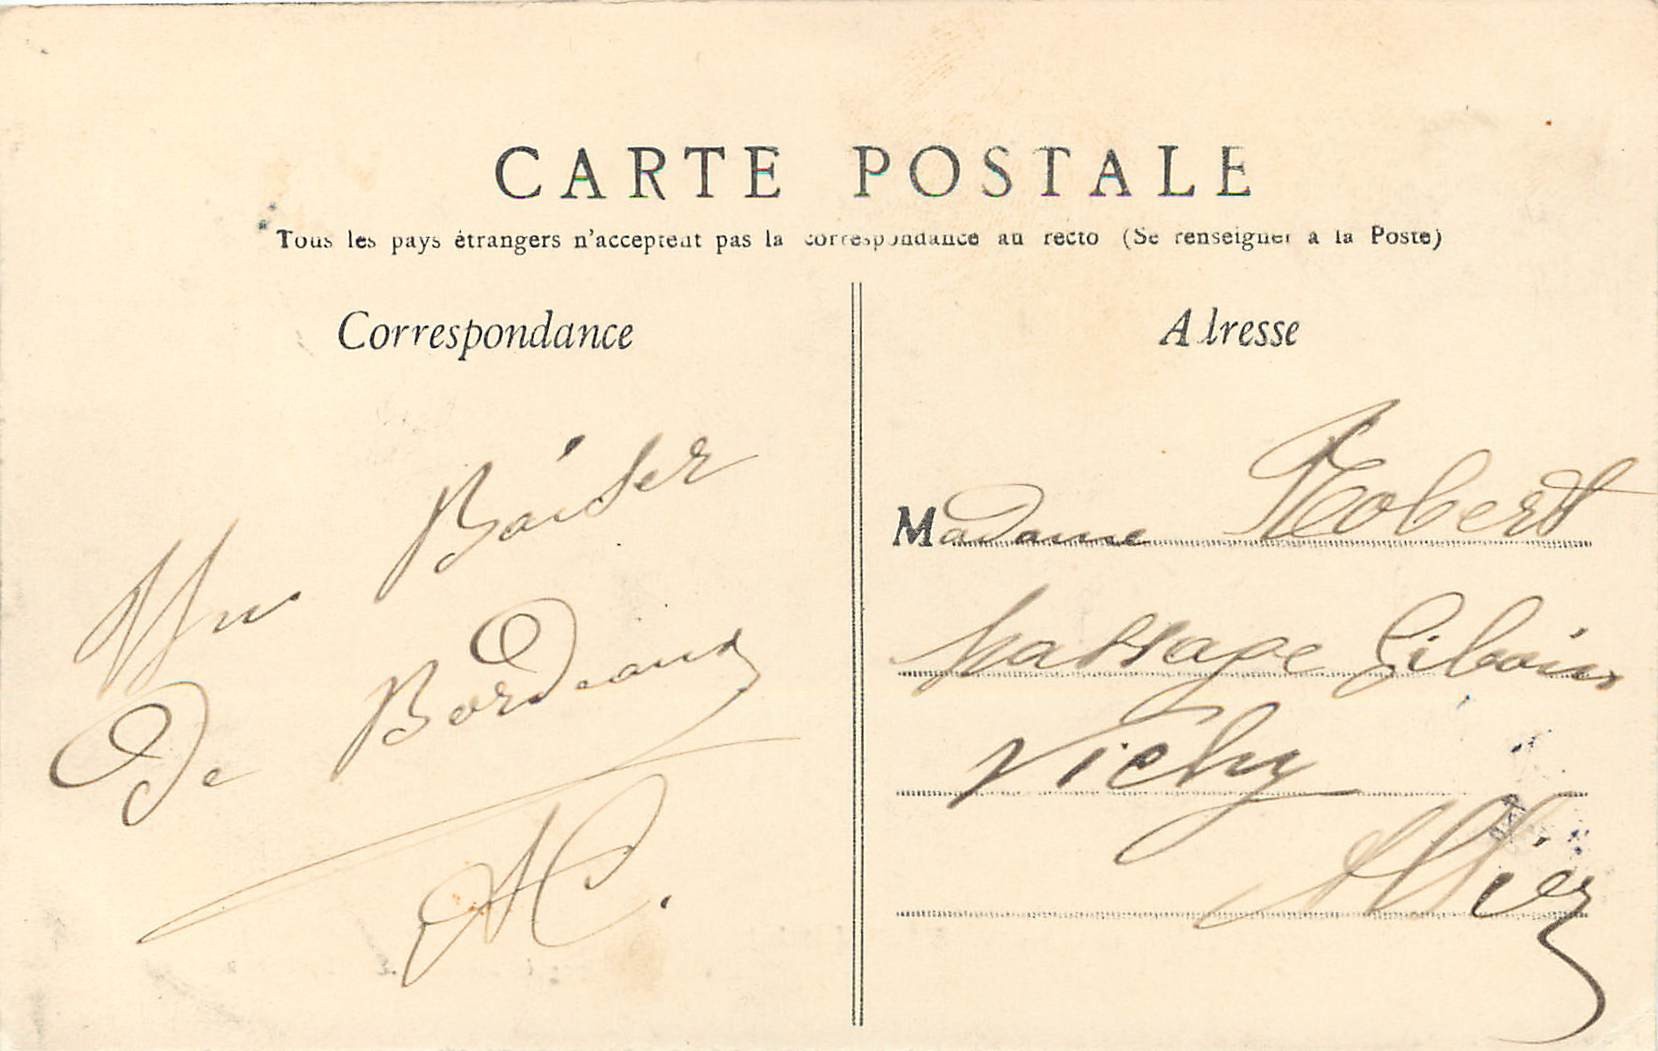 CARTE POSTALE
Tous les pays étrangers n'acceptent pas la correspondance au recto (Se renseigner à la Poste)
Correspondance
Un Baiser
De Bordeaux
AC.
Adresse
Madame Robert
passage Giboin
Vichy
Allier